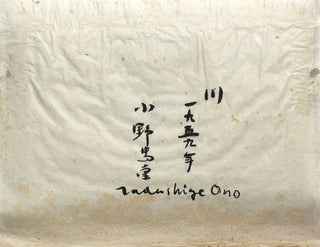 川
一九五九年
小野忠重
Tadashige Ono